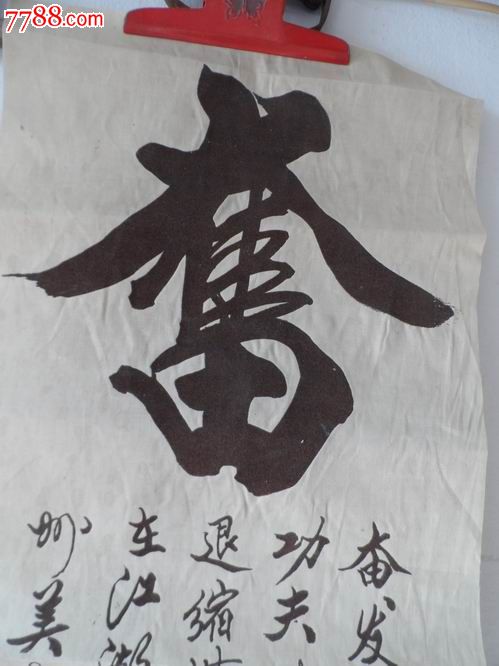 7788.com
奮
奋发
功夫
退缩
在江湖
妙美